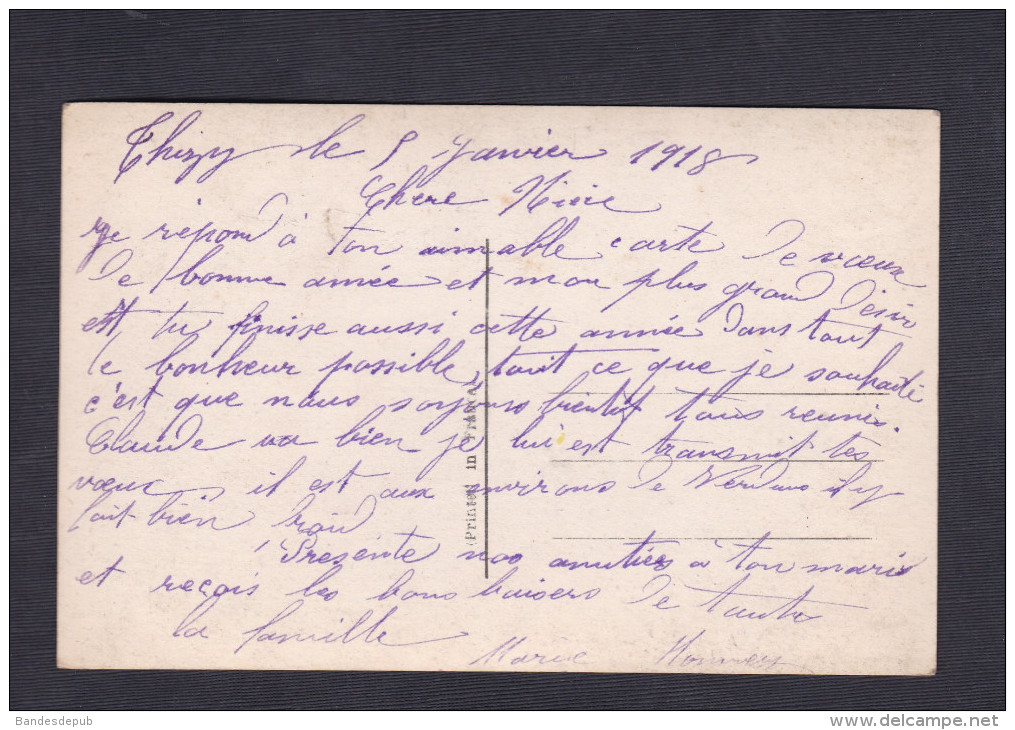 Thizy le 5 Janvier 1918
Chere Niece
Je répond à ton aimable carte de vœux
de bonne année et mon plus grand désir
est tu finisse aussi cette année dans tout
le bonheur possible, tout ce que je souhaite
c'est que nous soyons bientôt tous reunis.
Claude va bien je lui est transmit tes
vœux, il est aux environs de Verdun il y
fait bien froid
Présente nos amitiés à ton mari
et reçois les bons baisers de toute
la famille
Marie
(Printed in France)
Bandesdepub
www.delcampe.net